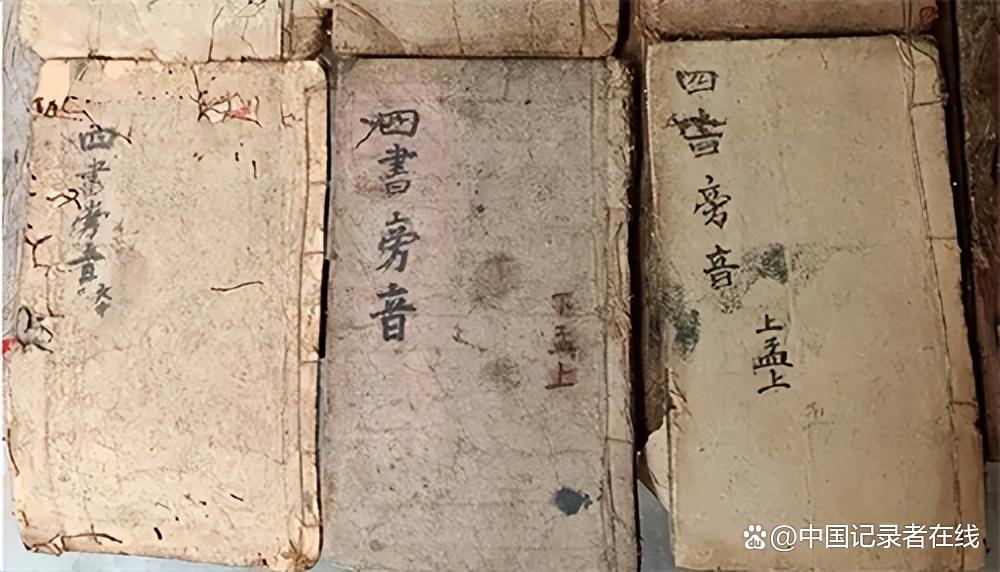 四書旁音
大中
四書旁音
下孟上
四書旁音
上孟上
@中国记录者在线